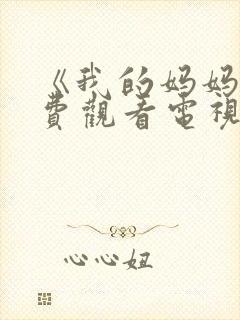 《我的妈妈
费觀看電視
心心妞